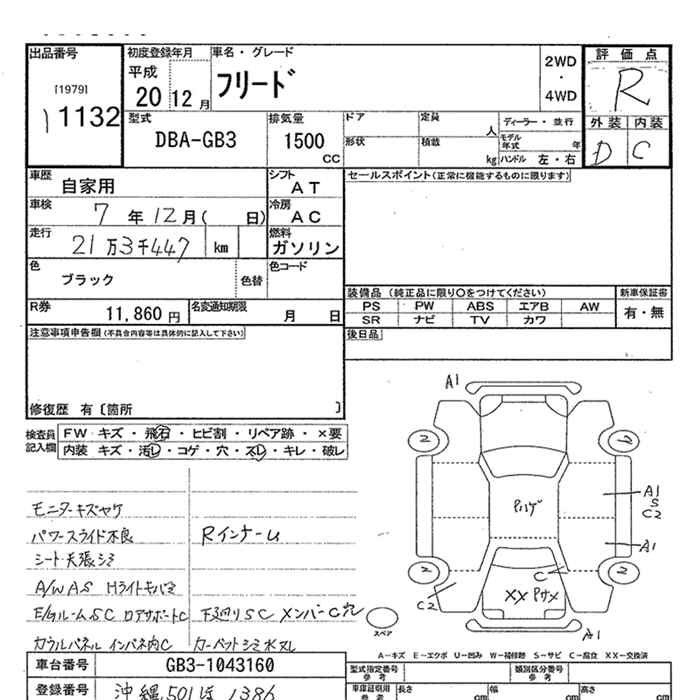 出品番号
[1979]
1132
初度登録年月
平成
20 12 月
車名・グレード
フリード
2WD
・
4WD
評価点
R
外装 内装
D C
型式
DBA-GB3
排気量
1500
CC
ドア
定員
人
形状
積載
kg
ディーラー・並行
モデル年式 年
ハンドル 左・右
車歴
自家用
シフト
AT
車検
7 年 12 月( 日)
冷房
AC
走行
21 万3千447 km
燃料
ガソリン
色
ブラック
色替
色コード
R券
11,860 円
名変通知期限
月 日
セールスポイント(正常に機能するものに限ります)
装備品 (純正品に限り○をつけてください)
新車保証書
PS PW ABS エアB AW
SR ナビ TV カワ
有・無
後日品
注意事項申告欄(不具合内容等は具体的に記入して下さい)
修復歴 有〔箇所 〕
検査員記入欄
FW キズ・飛石・ヒビ割・リペア跡・×要
内装 キズ・汚レ・コゲ・穴・スレ・キレ・破レ
モニターキズヤケ
パワースライド不良
Rインナーム
シート天張シミ
A/W AS Hライトキバミ
E/GルームSC ロアサポートC
下廻りSC メンバーC穴
カウルパネル インパネ内C
カーペットシミ水ヌレ
A1
2
2
Pハゲ
A1
S
C2
A1
2
2
C
C2
XX Pサメ
A1
スペア
A－キズ E－エクボ U－凹み W－補修跡 S－サビ C－腐食 XX－交換済
車台番号
GB3-1043160
型式指定番号
参考
類別区分番号
参考
登録番号
沖縄 501 ほ 1386
車庫証明用
参考
長さ cm
幅 cm
高さ cm